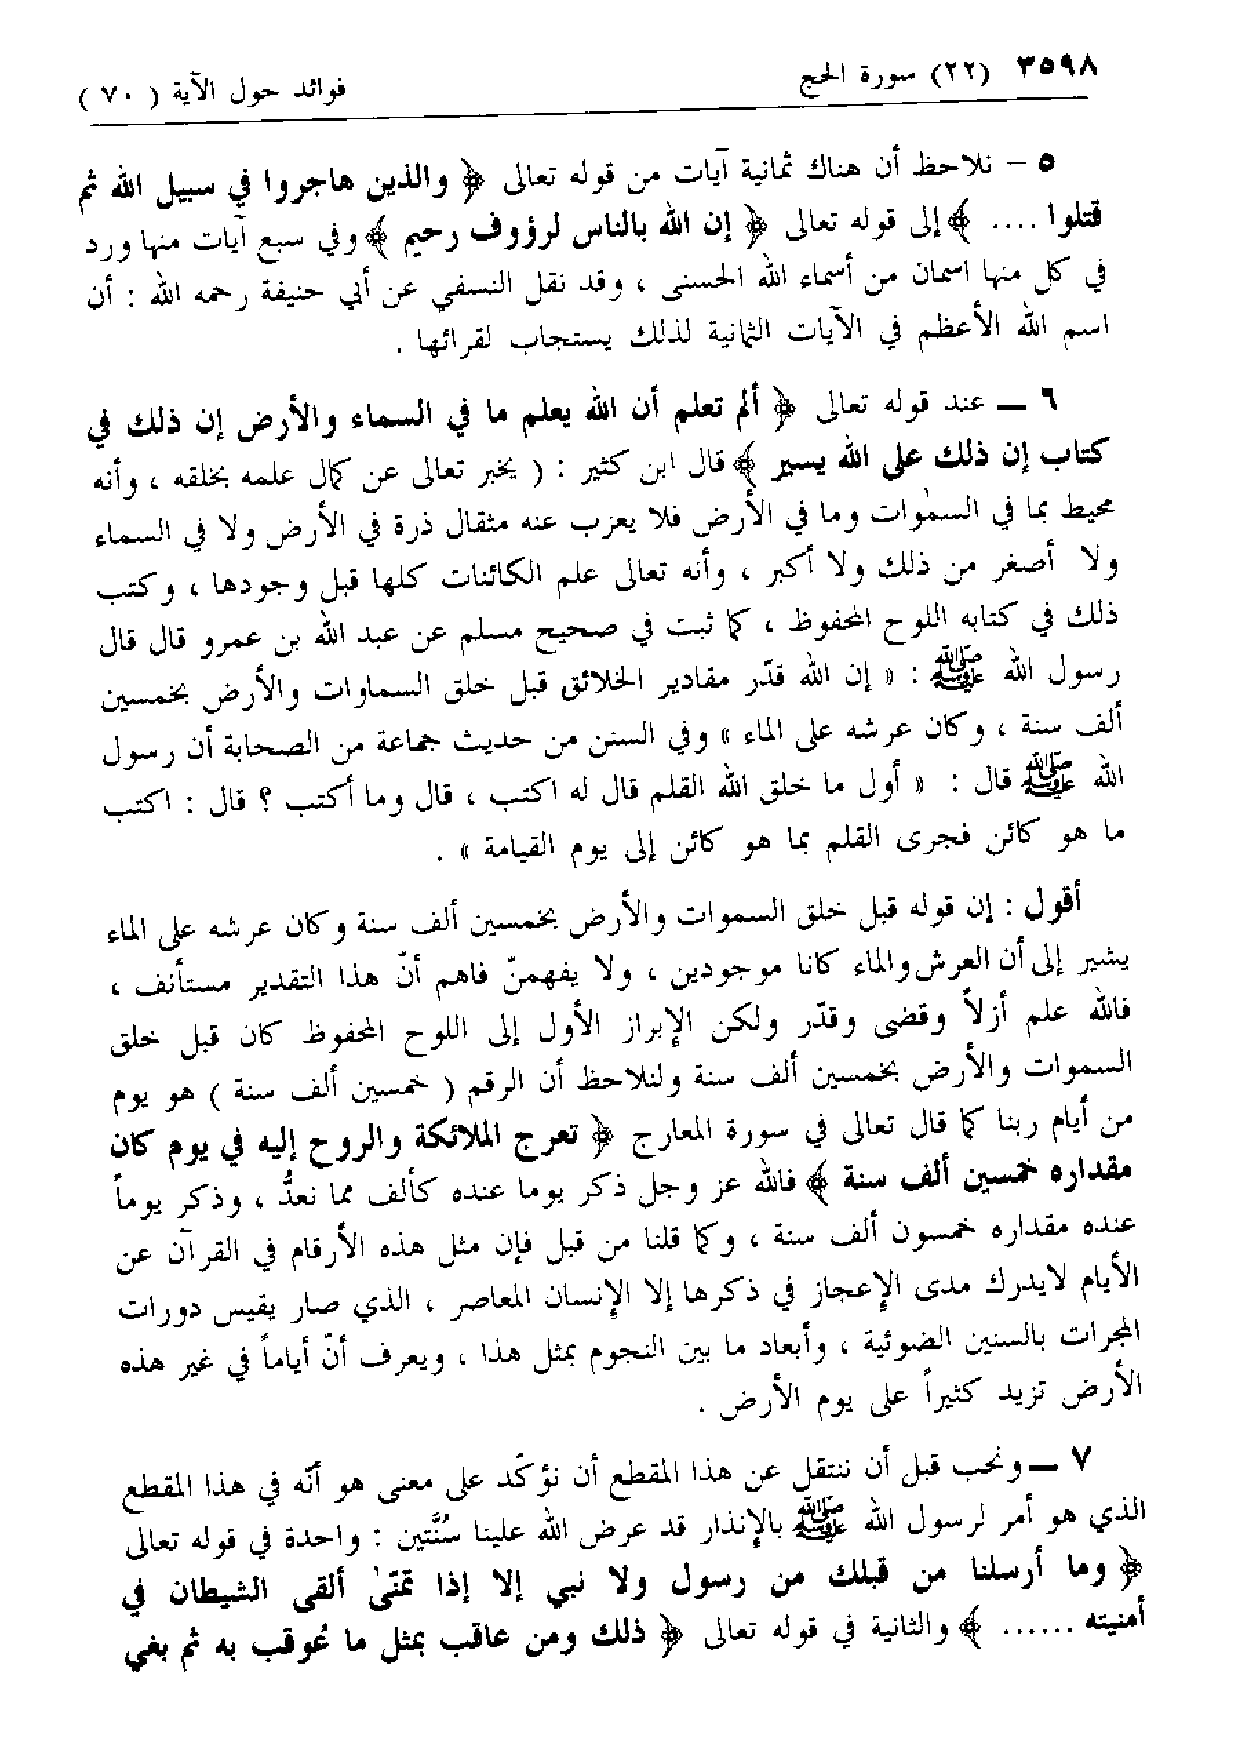 ٣٥٩٨ (٢٢) سورة الحج فوائد حول الآية ( ٧٠ )
٥ – نلاحظ أن هناك ثمانية آيات من قوله تعالى ﴿ والذين هاجروا في سبيل الله ثم
قتلوا .... ﴾ إلى قوله تعالى ﴿ إن الله بالناس لرؤوف رحيم ﴾ وفي سبع آيات منها ورد
في كل منها اسمان من أسماء الله الحسنى ، وقد نقل النسفي عن أبي حنيفة رحمه الله : أن
اسم الله الأعظم في الآيات الثمانية لذلك يستجاب لقرائها .
٦ – عند قوله تعالى ﴿ ألم تعلم أن الله يعلم ما في السماء والأرض إن ذلك في
كتاب إن ذلك على الله يسير ﴾ قال ابن كثير : ( يخبر تعالى عن كمال علمه بخلقه ، وأنه
محيط بما في السمٰوات وما في الأرض فلا يعزب عنه مثقال ذرة في الأرض ولا في السماء
ولا أصغر من ذلك ولا أكبر ، وأنه تعالى علم الكائنات كلها قبل وجودها ، وكتب
ذلك في كتابه اللوح المحفوظ ، كما ثبت في صحيح مسلم عن عبد الله بن عمرو قال قال
رسول الله ﷺ : « إن الله قدّر مقادير الخلائق قبل خلق السماوات والأرض بخمسين
ألف سنة ، وكان عرشه على الماء » وفي السنن من حديث جماعة من الصحابة أن رسول
الله ﷺ قال : « أول ما خلق الله القلم قال له اكتب ، قال وما أكتب ؟ قال : اكتب
ما هو كائن فجرى القلم بما هو كائن إلى يوم القيامة » .
أقول : إن قوله قبل خلق السموات والأرض بخمسين ألف سنة وكان عرشه على الماء
يشير إلى أن العرش والماء كانا موجودين ، ولا يفهمنّ فاهم أنّ هذا التقدير مستأنف ،
فالله علم أزلاً وقضى وقدّر ولكن الإبراز الأول إلى اللوح المحفوظ كان قبل خلق
السموات والأرض بخمسين ألف سنة ولنلاحظ أن الرقم ( خمسين ألف سنة ) هو يوم
من أيام ربنا كما قال تعالى في سورة المعارج ﴿ تعرج الملائكة والروح إليه في يوم كان
مقداره خمسين ألف سنة ﴾ فالله عز وجل ذكر يوما عنده كألف مما نعدُّ ، وذكر يوماً
عنده مقداره خمسون ألف سنة ، وكما قلنا من قبل فإن مثل هذه الأرقام في القرآن عن
الأيام لايدرك مدى الإعجاز في ذكرها إلا الإنسان المعاصر ، الذي صار يقيس دورات
المجرات بالسنين الضوئية ، وأبعاد ما بين النجوم بمثل هذا ، ويعرف أنّ أياماً في غير هذه
الأرض تزيد كثيراً على يوم الأرض .
٧ – ونحب قبل أن ننتقل عن هذا المقطع أن نؤكّد على معنى هو أنّه في هذا المقطع
الذي هو أمر لرسول الله ﷺ بالإنذار قد عرض الله علينا سُنَّتين : واحدة في قوله تعالى
﴿ وما أرسلنا من قبلك من رسول ولا نبي إلا إذا تمنّىٰ ألقى الشيطان في
أمنيته ...... ﴾ والثانية في قوله تعالى ﴿ ذلك ومن عاقب بمثل ما عُوقب به ثم بغي